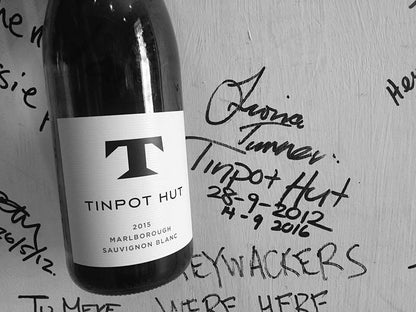 T
TINPOT HUT
2015
MARLBOROUGH
SAUVIGNON BLANC
Fiona
Turner
Tinpot Hut
28-9-2012
14-9 2016
26/5/12.
EYWACKERS
WERE HERE